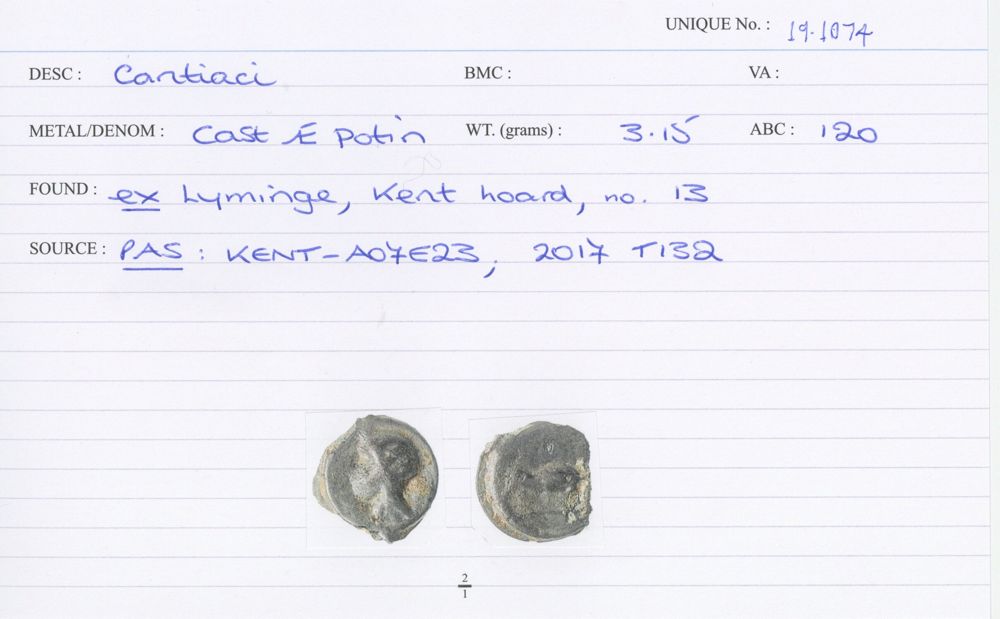 UNIQUE No. : 19.1074
DESC : Cantiaci BMC : VA :
METAL/DENOM : Cast Æ Potin WT. (grams) : 3.15 ABC : 120
FOUND : ex Lyminge, Kent hoard, no. 13
SOURCE : PAS : KENT-A07E23, 2017 T132
2
1